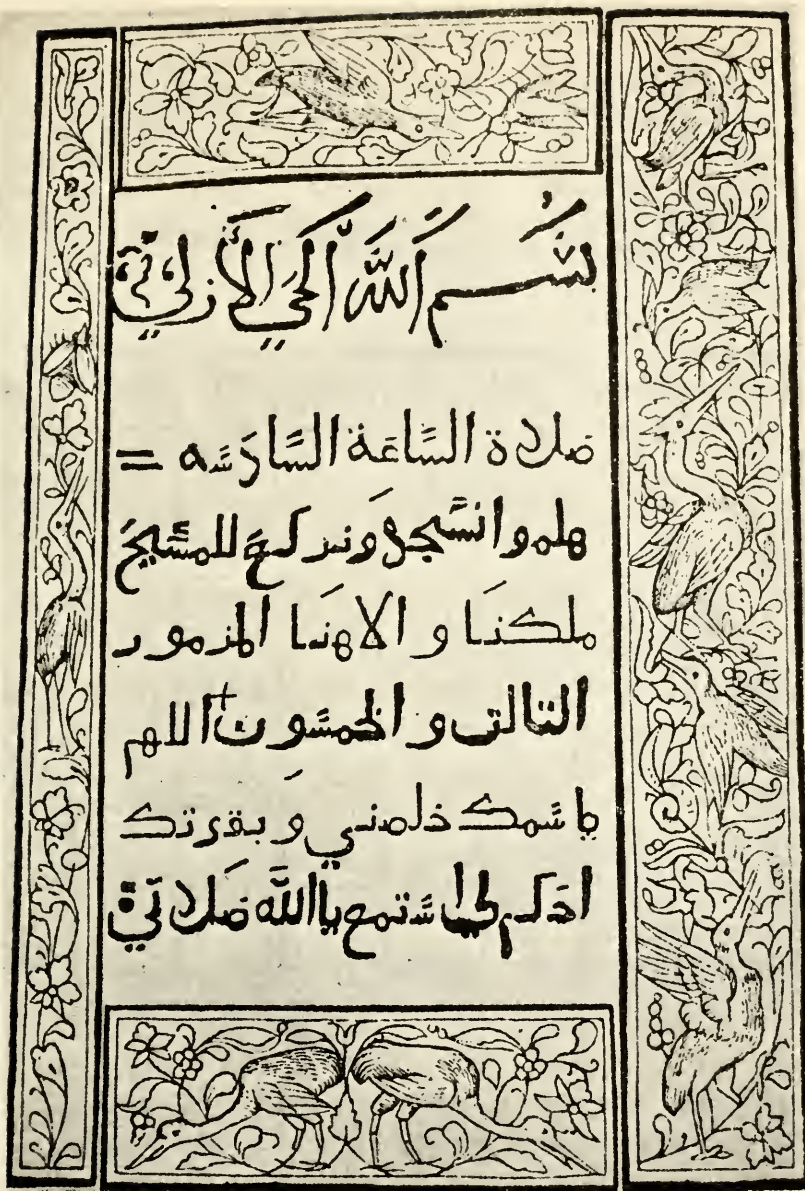 بِسْمِ اللّٰه الحَي الأَزلي
صلاة السَّاعَة السَّادسَه =
هلموا نسَّجد ونركع للمسَّيح
ملكنا و الاهنا المزمور
التالت و الخمسَّون اللهم
باسَّمك خلصني و بقوتك
احكم لي اسَّتمع يا الله صلاتي